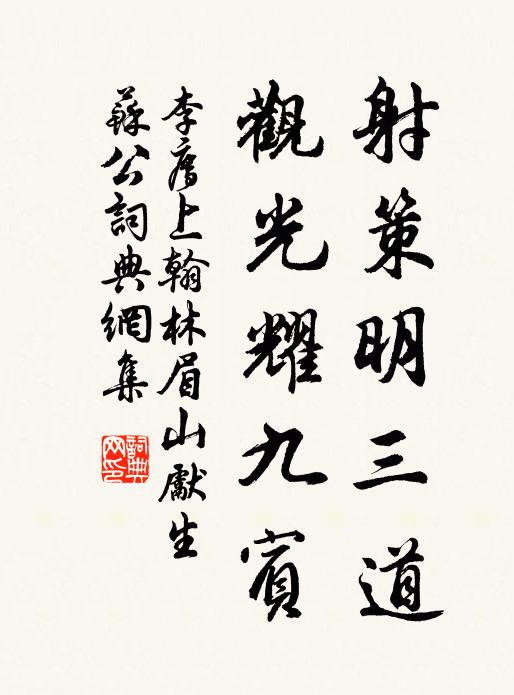 射策明三道
觀光耀九賓
李廌上翰林眉山獻生
蘇公詞典網集
詞典
网印